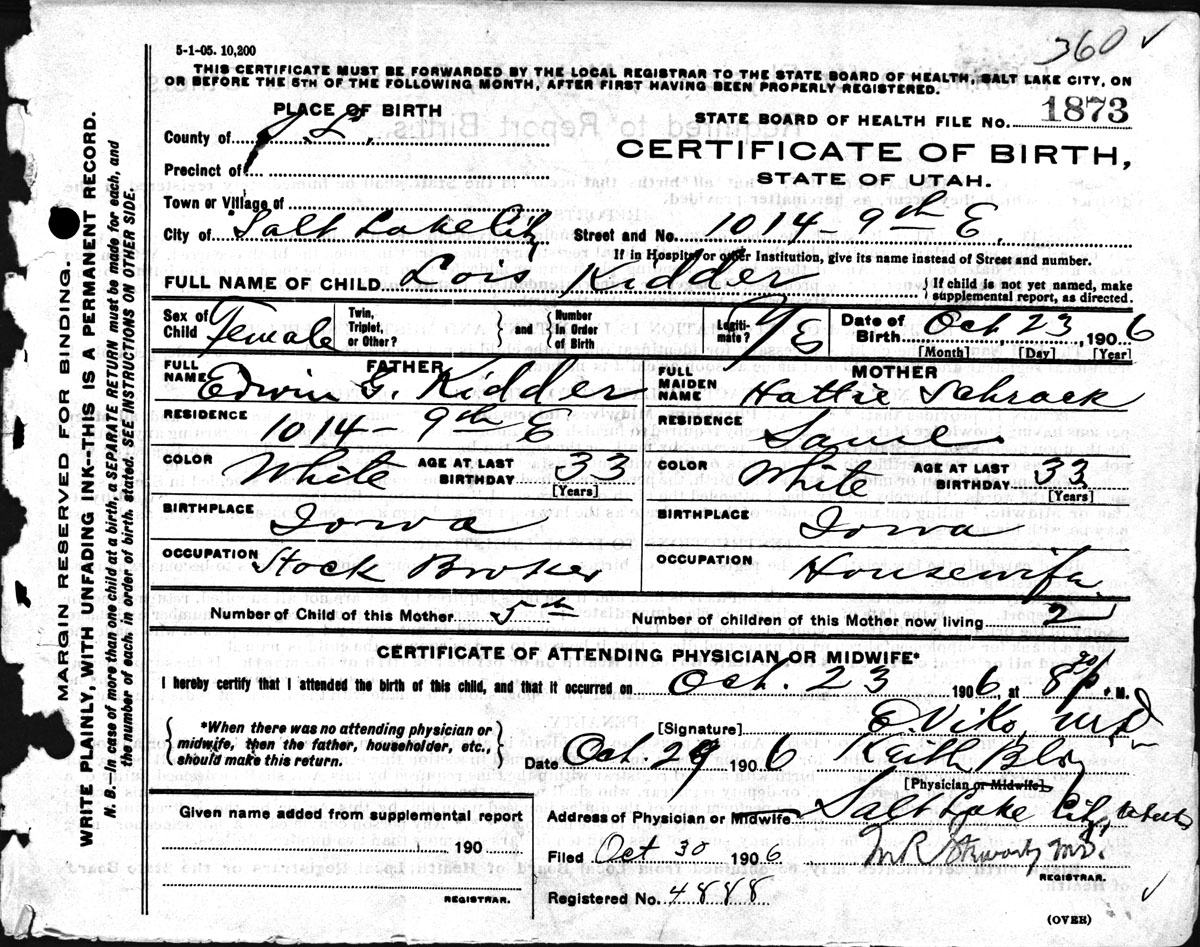 360 ✓
5-1-05. 10,200
THIS CERTIFICATE MUST BE FORWARDED BY THE LOCAL REGISTRAR TO THE STATE BOARD OF HEALTH, SALT LAKE CITY, ON
OR BEFORE THE 5TH OF THE FOLLOWING MONTH, AFTER FIRST HAVING BEEN PROPERLY REGISTERED.
PLACE OF BIRTH
County of S. L.
Precinct of
Town or Village of
City of Salt Lake City
STATE BOARD OF HEALTH FILE NO. 1873
CERTIFICATE OF BIRTH,
STATE OF UTAH.
Street and No. 1014 - 9th E.
If in Hospital or other Institution, give its name instead of Street and number.
FULL NAME OF CHILD Lois Kidder
{If child is not yet named, make supplemental report, as directed.
Sex of Child Female
Twin, Triplet, or Other? } and { Number in Order of Birth
Legitimate? Yes
Date of Birth Oct. 23 1906
[Month] [Day] [Year]
FATHER
FULL NAME Edwin G. Kidder
RESIDENCE 1014 - 9th E
COLOR White AGE AT LAST BIRTHDAY 33 [Years]
BIRTHPLACE Iowa
OCCUPATION Stock Broker
MOTHER
FULL MAIDEN NAME Hattie Schrock
RESIDENCE Same
COLOR White AGE AT LAST BIRTHDAY 33 [Years]
BIRTHPLACE Iowa
OCCUPATION Housewife
Number of Child of this Mother 5th Number of children of this Mother now living 2
CERTIFICATE OF ATTENDING PHYSICIAN OR MIDWIFE*
I hereby certify that I attended the birth of this child, and that it occurred on Oct. 23 1906, at 8 30 P. M.
{*When there was no attending physician or midwife, then the father, householder, etc., should make this return.}
[Signature] E. Viko, MD
Date Oct. 29 1906 Keith Blg
[Physician or Midwife]
Address of Physician or Midwife Salt Lake City, Utah
Given name added from supplemental report
190
REGISTRAR.
Filed Oct 30 1906 MD.
REGISTRAR.
Registered No. 4888 ✓
(OVER)
MARGIN RESERVED FOR BINDING.
WRITE PLAINLY, WITH UNFADING INK--THIS IS A PERMANENT RECORD.
N. B. In case of more than one child at a birth, a SEPARATE RETURN must be made for each, and
the number of each, in order of birth, stated. SEE INSTRUCTIONS ON OTHER SIDE.